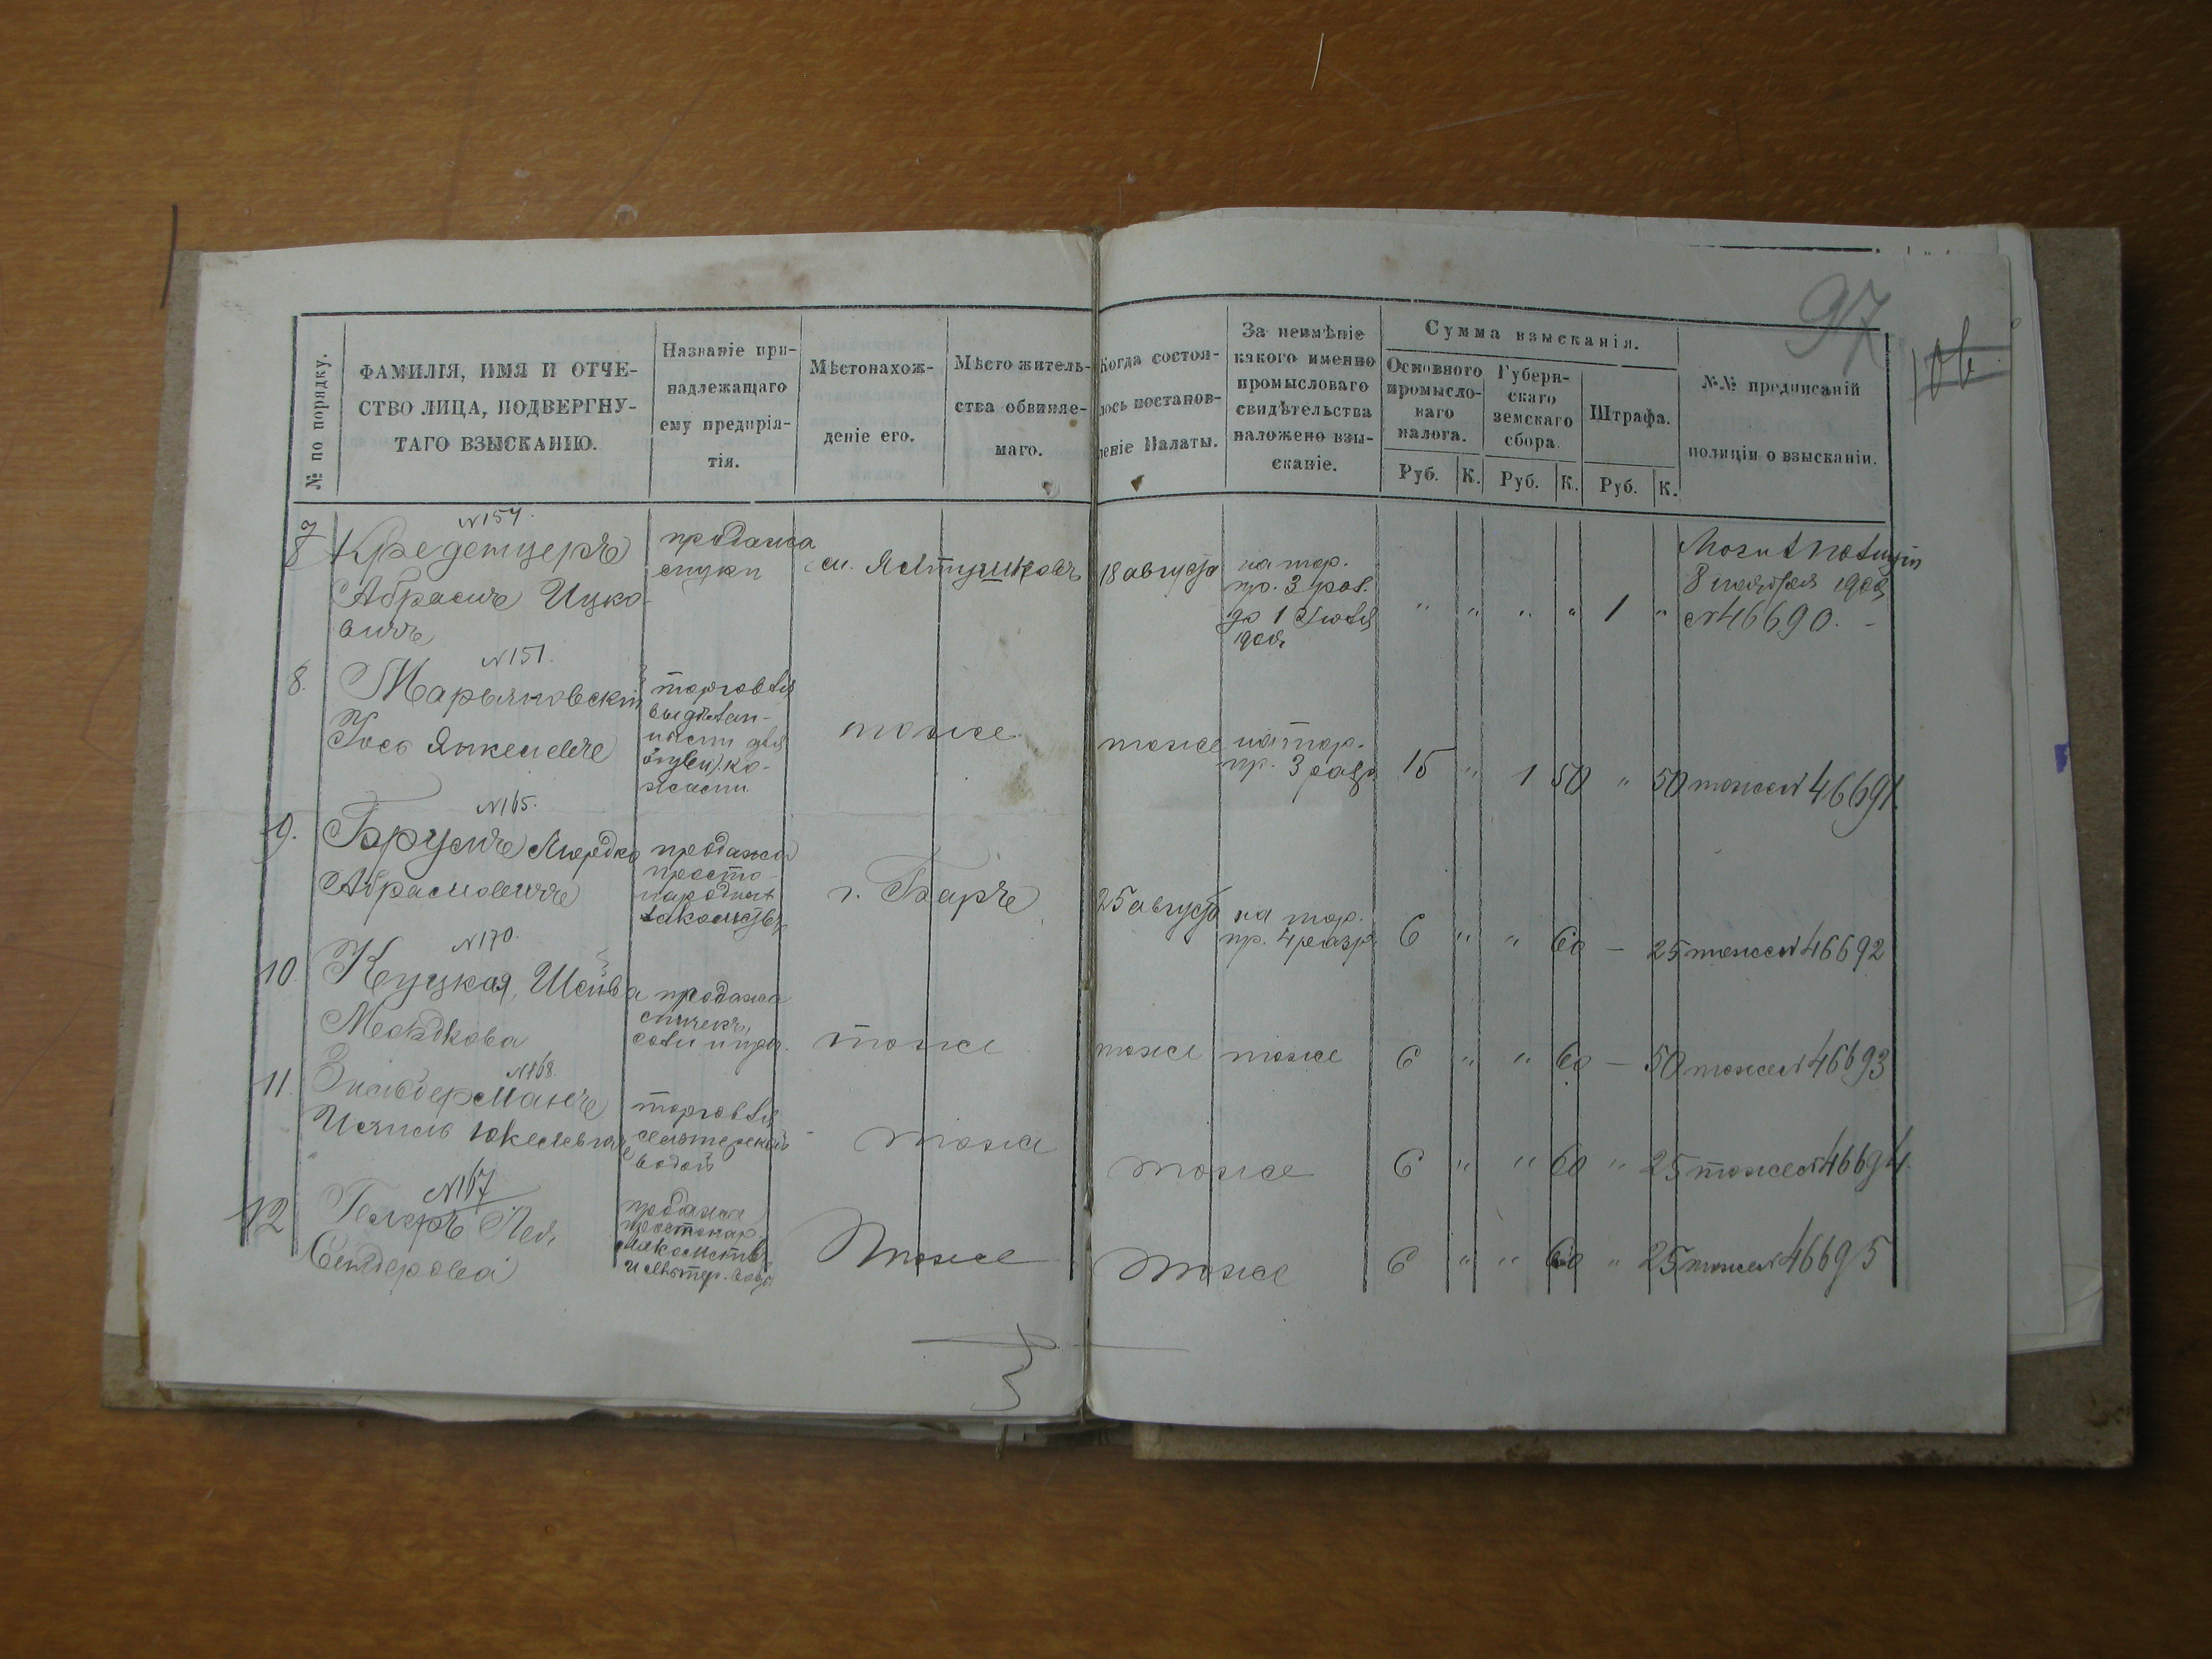 97
№ по порядку.
ФАМИЛІЯ, ИМЯ И ОТЧЕ-
СТВО ЛИЦА, ПОДВЕРГНУ-
ТАГО ВЗЫСКАНІЮ.
Названіе при-
надлежащаго
ему предпрія-
тія.
Мѣстонахож-
деніе его.
Мѣсто житель-
ства обвиняе-
маго.
Когда состоя-
лось постанов-
леніе Палаты.
За неимѣніе
какого именно
промысловаго
свидѣтельства
наложено взы-
сканіе.
Сумма взысканія.
Основного
промысло-
ваго
налога.
Губерн-
скаго
земскаго
сбора.
Штрафа.
Руб. К. Руб. К. Руб. К.
№№ предписаній
полиціи о взысканіи.
7
№154.
Кредитцеръ
Абрамъ Ицко-
вичъ
продажа
муки
м. Ялтушковъ
18 августа
на тор.
пр. 3 раз.
до 1 Іюля
" " " " 1 "
8 ноября 1908
№46690. -
8.
№151.
Марьяновскій
Іось Янкелевъ
торговля
тоже
тоже
на тор.
пр. 3 разр.
15 " 1 50 " 50
тоже № 46691
9.
№165.
Брумъ Мордко
Абрамовичъ
продажа
просто-
народныхъ
лакомствъ
г. Баръ
25 августа
на тор.
пр. 4 разр.
6 " " 60 — 25
тоже № 46692
10.
№170.
Куцкая, Шейва
продажа
спичекъ,
соли и пр.
тоже
тоже
тоже
6 " " 60 — 50
тоже № 46693
11
№168.
Зильберманъ
торговля
сельтерской
водой
тоже
тоже
6 " " 60 " 25
тоже № 46694.
12
№167
Сендерова
продажа
простонар.
лакомствъ
и сельтер. воды
тоже
тоже
6 " " 60 " 25
тоже № 46695